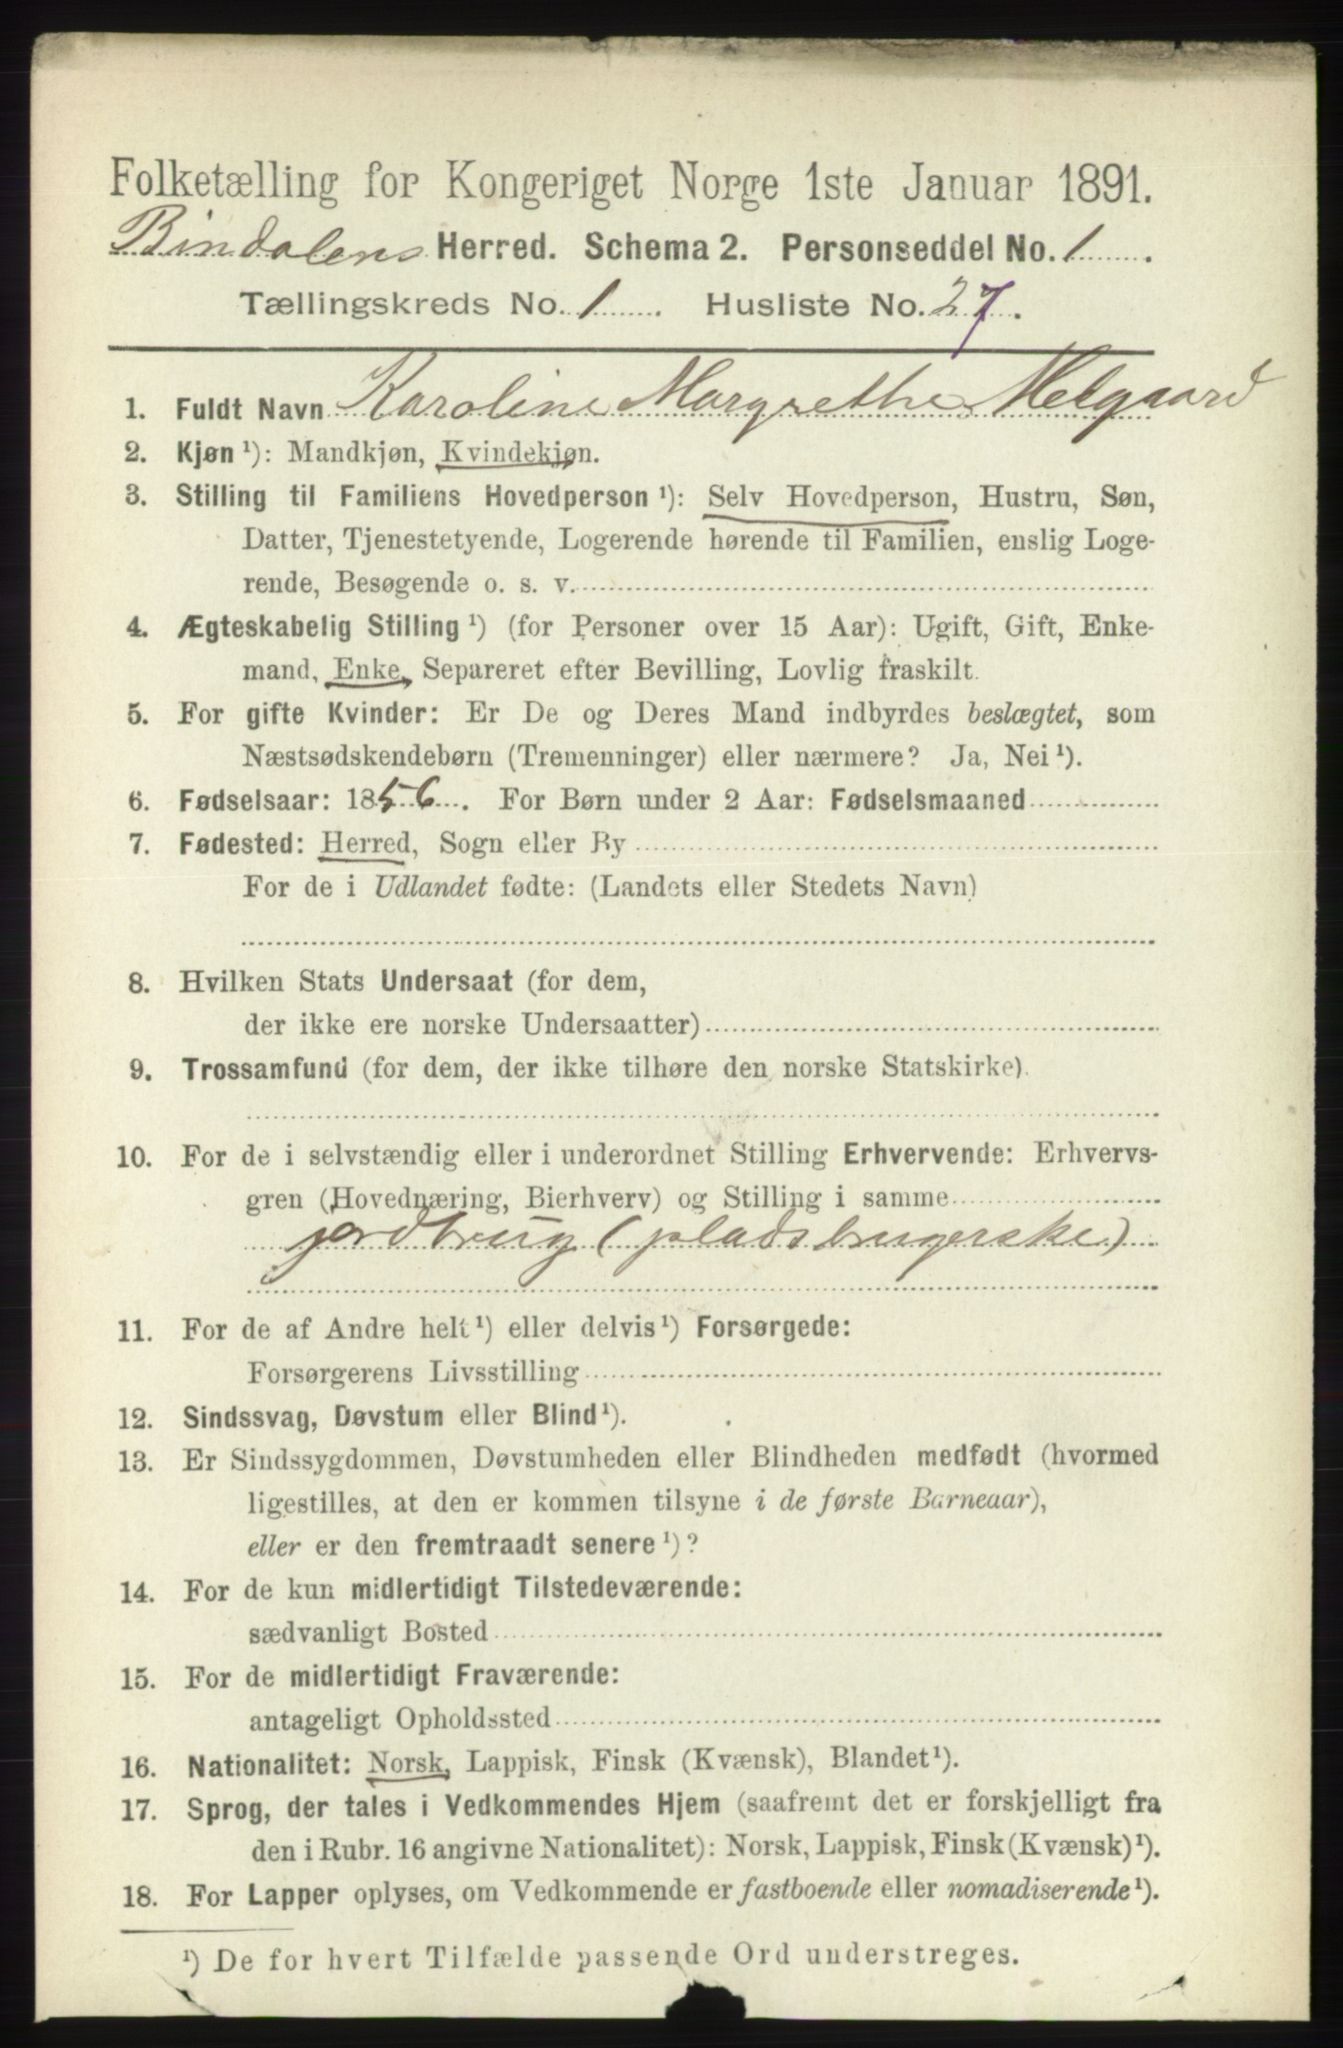 Folketælling for Kongeriget Norge 1ste Januar 1891.
Bindalens Herred. Schema 2. Personseddel No. 1.
Tællingskreds No. 1. Husliste No. 27.
1. Fuldt Navn Karoline Margrethe Melgaard
2. Kjøn ¹): Mandkjøn, Kvindekjøn.
3. Stilling til Familiens Hovedperson ¹): Selv Hovedperson, Hustru, Søn,
Datter, Tjenestetyende, Logerende hørende til Familien, enslig Loge-
rende, Besøgende o. s. v.
4. Ægteskabelig Stilling ¹) (for Personer over 15 Aar): Ugift, Gift, Enke-
mand, Enke, Separeret efter Bevilling, Lovlig fraskilt.
5. For gifte Kvinder: Er De og Deres Mand indbyrdes beslægtet, som
Næstsødskendebørn (Tremenninger) eller nærmere? Ja, Nei ¹).
6. Fødselsaar: 1856. For Børn under 2 Aar: Fødselsmaaned
7. Fødested: Herred, Sogn eller By
For de i Udlandet fødte: (Landets eller Stedets Navn)
8. Hvilken Stats Undersaat (for dem,
der ikke ere norske Undersaatter)
9. Trossamfund (for dem, der ikke tilhøre den norske Statskirke).
10. For de i selvstændig eller i underordnet Stilling Erhvervende: Erhvervs-
gren (Hovednæring, Bierhverv) og Stilling i samme
jordbrug (pladsbrugerske)
11. For de af Andre helt ¹) eller delvis ¹) Forsørgede:
Forsørgerens Livsstilling
12. Sindssvag, Døvstum eller Blind ¹).
13. Er Sindssygdommen, Døvstumheden eller Blindheden medfødt (hvormed
ligestilles, at den er kommen tilsyne i de første Barneaar),
eller er den fremtraadt senere ¹)?
14. For de kun midlertidigt Tilstedeværende:
sædvanligt Bosted
15. For de midlertidigt Fraværende:
antageligt Opholdssted
16. Nationalitet: Norsk, Lappisk, Finsk (Kvænsk), Blandet ¹).
17. Sprog, der tales i Vedkommendes Hjem (saafremt det er forskjelligt fra
den i Rubr. 16 angivne Nationalitet): Norsk, Lappisk, Finsk (Kvænsk) ¹).
18. For Lapper oplyses, om Vedkommende er fastboende eller nomadiserende ¹).
¹) De for hvert Tilfælde passende Ord understreges.